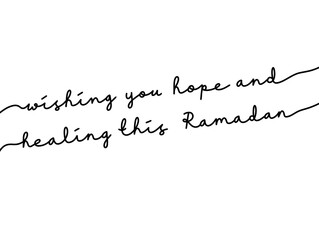 wishing you hope and
healing this Ramadan